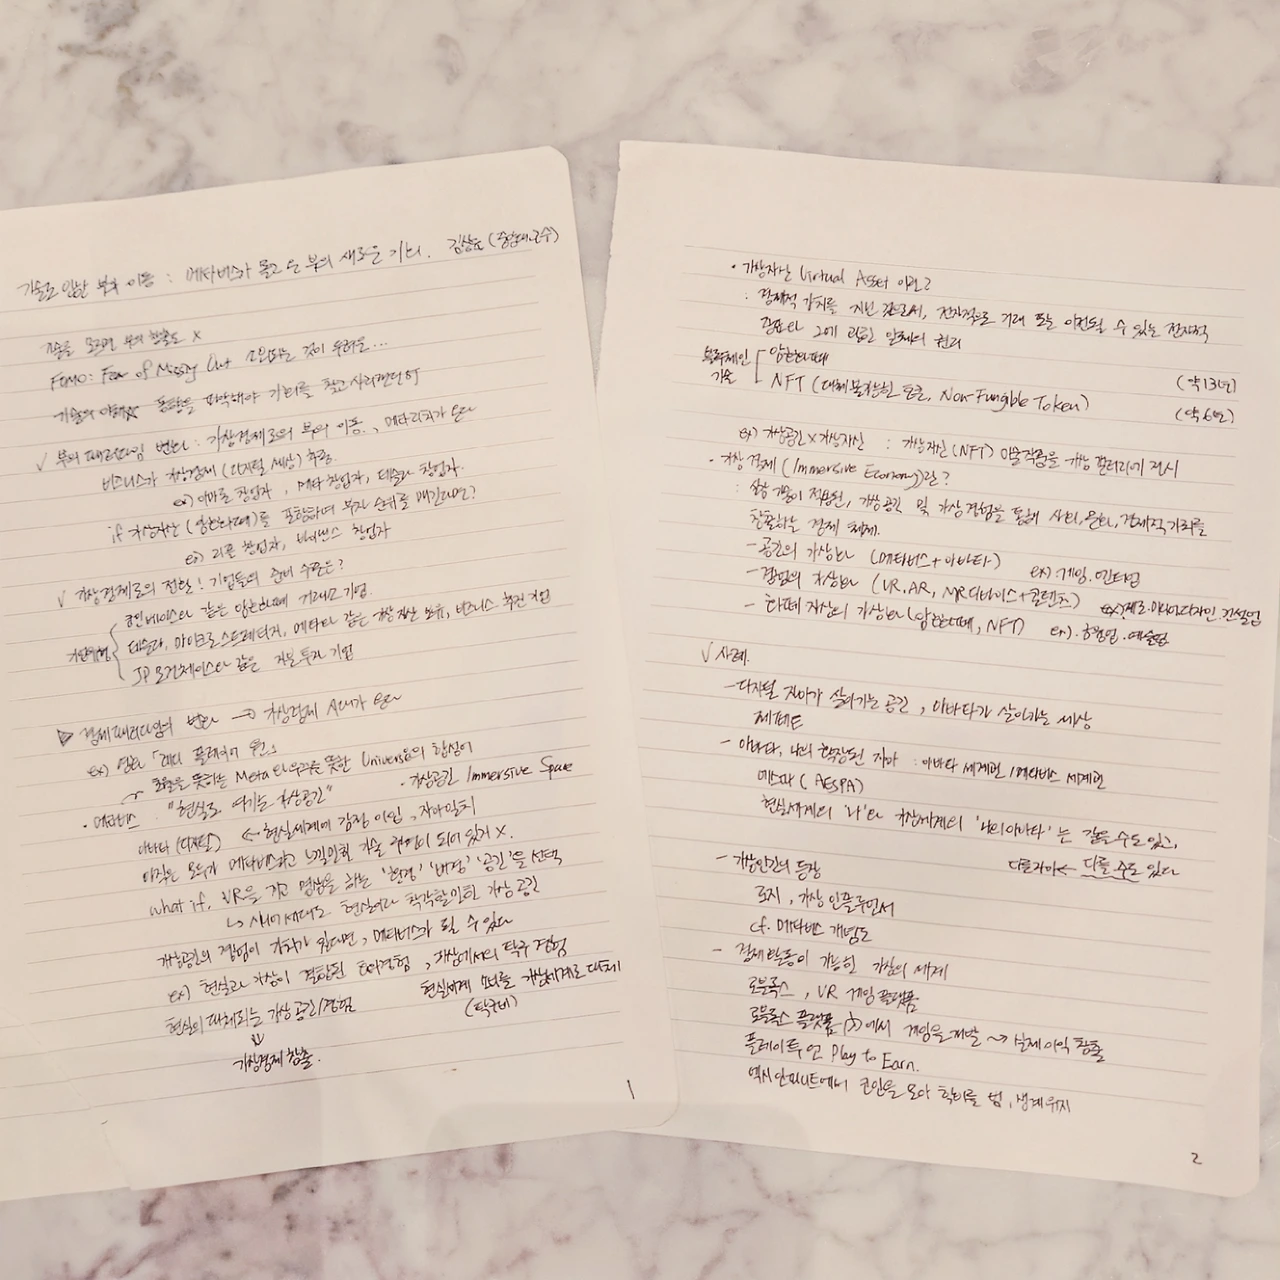 기술로 인한 부의 이동 : 메타버스가 몰고 온 부의 새로운 기회. 김상윤 (중앙대 교수)
기술을 모르면 부의 창출도 X
FOMO: Fear of Missing Out 소외되는 것이 두려움...
흐름을 파악해야 기회를 찾고 살아남는
√ 부의 패러다임 변화 : 가상경제로의 부의 이동., 메타리치가 온다
비즈니스가 가상경제 (디지털 세상) 확장.
ex) 아마존 창업자, 메타 창업자, 테슬라 창업자.
if 가상자산 (암호화폐)를 포함하여 부자 순위를 매긴다면?
ex) 리플 창업자, 바이낸스 창업자
√ 가상경제로의 전환! 기업들의 준비 수준은?
코인베이스와 같은 암호화폐 거래소 기업
기업유형 테슬라, 마이크로스트래티지, 메타와 같은 가상자산 보유, 비즈니스 추진 기업
JP모건체이스와 같은 자본투자 기업
▷ 경제패러다임의 변화 → 가상경제 시대가 온다
ex) 영화 「레디 플레이어 원」
초월을 뜻하는 Meta와 우주를 뜻한 Universe의 합성어
• 메타버스 : "현실로 여기는 가상공간" • 가상공간 Immersive Space
아바타 (디지털) ← 현실세계에 감정이입, 자아일치
아직은 모두가 메타버스라고 느낄만한 기술 구현이 되어 있지 X.
what if, VR을 끼고 명상을 하는 '환경' '배경' '공간'을 선택
↳ 새에세대도 현실이라 착각할만한 가상 공간
가상공간의 경험이 가치가 있다면, 메타버스가 될 수 있다
ex) 현실과 가상이 결합된 놀이경험, 가상에서의 탁구 경험
현실의 대체되는 가상 공간/경험 현실세계 소비를 가상세계로 대체
(탁구비)
⇓
가상경제 창출.
1
• 가상자산 Virtual Asset 이란?
: 경제적 가치를 지닌 것으로서, 전자적으로 거래 또는 이전될 수 있는 전자적
증표와 그에 관한 일체의 권리
블록체인 기술 [ 암호화폐 (약 13년)
NFT (대체불가능한 토큰, Non-Fungible Token) (약 6년)
ex) 가상공간 X 가상자산 : 가상자산 (NFT) 미술작품을 가상 갤러리에 전시
• 가상 경제 (Immersive Economy)란?
: 실감 기술이 적용된, 가상공간 및 가상경험을 통해 사회, 문화, 경제적 가치를
창출하는 경제 체제.
- 공간의 가상화 (메타버스+아바타) ex) 게임.엔터업
- 경험의 가상화 (VR, AR, MR디바이스+콘텐츠) ex) 제조.미디어.디자인.건설업
- 화폐 자산의 가상화 (암호화폐, NFT) ex). 금융업. 예술업
√ 사례.
- 디지털 자아가 살아가는 공간, 아바타가 살아가는 세상
제페토
- 아바타, 나의 확장된 자아 : 아바타 세계관 / 메타버스 세계관
에스파 (AESPA)
현실세계의 '나'와 가상세계의 '나의 아바타'는 같을 수도 있고,
다른자아 ← 다를 수도 있다
- 가상인간의 등장
로지, 가상 인플루언서
cf. 메타버스 개발도
- 경제 활동이 가능한 가상의 세계
로블록스, VR 게임 플랫폼
로블록스 플랫폼 에서 게임을 개발 → 실제 이익 창출
플레이 투 언 Play to Earn.
엑시 인피니트에서 코인을 모아 학비를 범, 생계유지
2